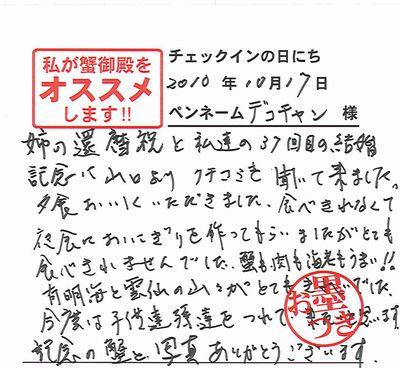 私が蟹御殿を
オススメ
します!!
チェックインの日にち
2010年10月17日
ペンネーム デコチャン 様
姉の還暦祝と私達の37回目の結婚
記念に山口より クチコミを聞いて来ました。
夕食おいしくいただきました。食べきれなくて
夜食におにぎりを作ってもらいましたがとても
食べきれませんでした。蟹も肉も海老もうまい!!
有明海と雲仙の山々がとても
でした
今度は子供達孫達をつれて
思います
記念の蟹と写真ありがとうございます。
お墨つき